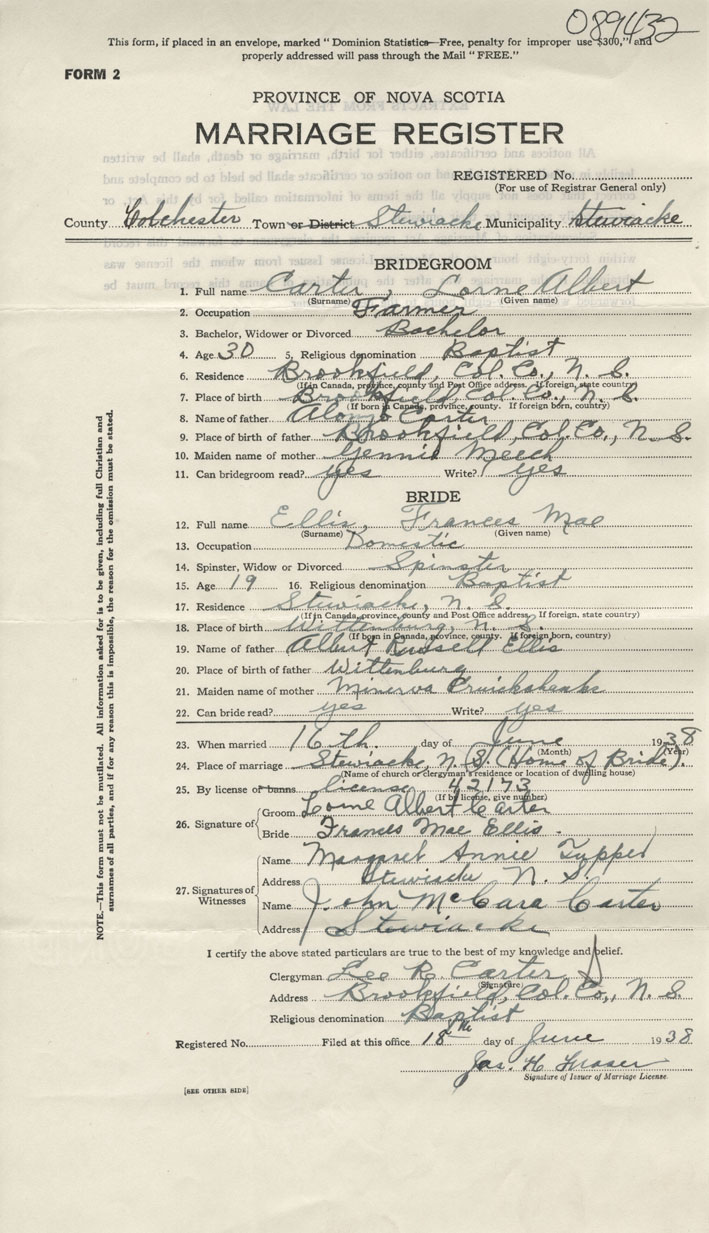 089432
This form, if placed in an envelope, marked "Dominion Statistics—Free, penalty for improper use $300," and
properly addressed will pass through the Mail "FREE."
FORM 2
PROVINCE OF NOVA SCOTIA
MARRIAGE REGISTER
REGISTERED No.
(For use of Registrar General only)
County Colchester Town or District Stewiacke Municipality Stewiacke
BRIDEGROOM
1. Full name Carter, Lorne Albert
(Surname) (Given name)
2. Occupation Farmer
3. Bachelor, Widower or Divorced Bachelor
4. Age 30 5. Religious denomination Baptist
6. Residence Brookfield, Col. Co., N. S.
(If in Canada, province, county and Post Office address. If foreign, state country)
7. Place of birth Brookfield, Col. Co., N. S.
(If born in Canada, province, county. If foreign born, country)
8. Name of father Alonzo Carter
9. Place of birth of father Brookfield, Col. Co., N. S.
10. Maiden name of mother Gennie Meech
11. Can bridegroom read? yes Write? yes
BRIDE
12. Full name Ellis, Frances Mae
(Surname) (Given name)
13. Occupation Domestic
14. Spinster, Widow or Divorced Spinster
15. Age 19 16. Religious denomination Baptist
17. Residence Stewiacke, N. S.
(If in Canada, province, county and Post Office address. If foreign, state country)
18. Place of birth Wittenburg, N. S.
(If born in Canada, province, county. If foreign born, country)
19. Name of father Albert Russell Ellis
20. Place of birth of father Wittenburg
21. Maiden name of mother Minerva Cruickshanks
22. Can bride read? yes Write? yes
23. When married 16th. day of June 1938
(Month) (Year)
24. Place of marriage Stewiacke, N. S. (Home of Bride).
(Name of church or clergyman's residence or location of dwelling house)
25. By license or banns license 42173
(If by license, give number)
26. Signature of Groom Lorne Albert Carter
Bride Frances Mae Ellis.
27. Signatures of Witnesses
Name Margaret Annie Tupper
Address Stewiacke N. S.
Name John McCara Carter
Address Stewiacke
I certify the above stated particulars are true to the best of my knowledge and belief.
Clergyman Lee R. Carter
(Signature)
Address Brookfield, Col. Co., N. S.
Religious denomination Baptist
Registered No. Filed at this office 18th day of June 1938
Jas. H. Fraser
Signature of Issuer of Marriage License.
[SEE OTHER SIDE]
NOTE.—This form must not be mutilated. All information asked for is to be given, including full Christian and
surnames of all parties, and if for any reason this is impossible, the reason for the omission must be stated.